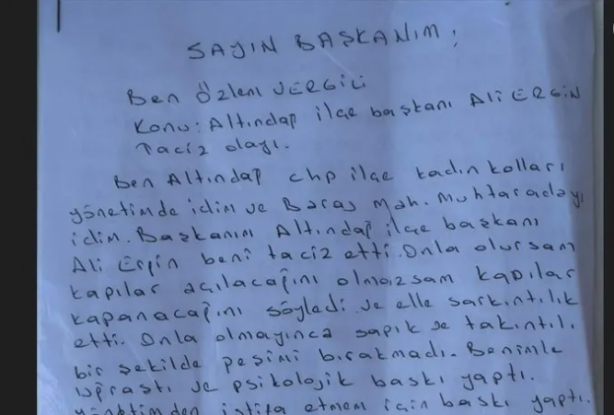 SAYIN BAŞKANIM;
Ben Özlem VERGİLİ
Konu: Altındağ ilçe başkanı Ali ERGİN
Taciz olayı.
Ben Altındağ chp ilçe kadın kolları
yönetimde idim ve Baraj Mah. Muhtaradayı
idim. Başkanım Altındağ ilçe başkanı
Ali Ergin beni taciz etti. Onla olursam
kapılar açılacağını olmazsam kapılar
kapanacağını söyledi ve elle sarkıntılık
etti. Onla olmayınca sapık ve takıntılı
bir şekilde peşimi bırakmadı. Benimle
uğraştı ve psikolojik baskı yaptı.
yönetimden istifa etmem için baskı yaptı.